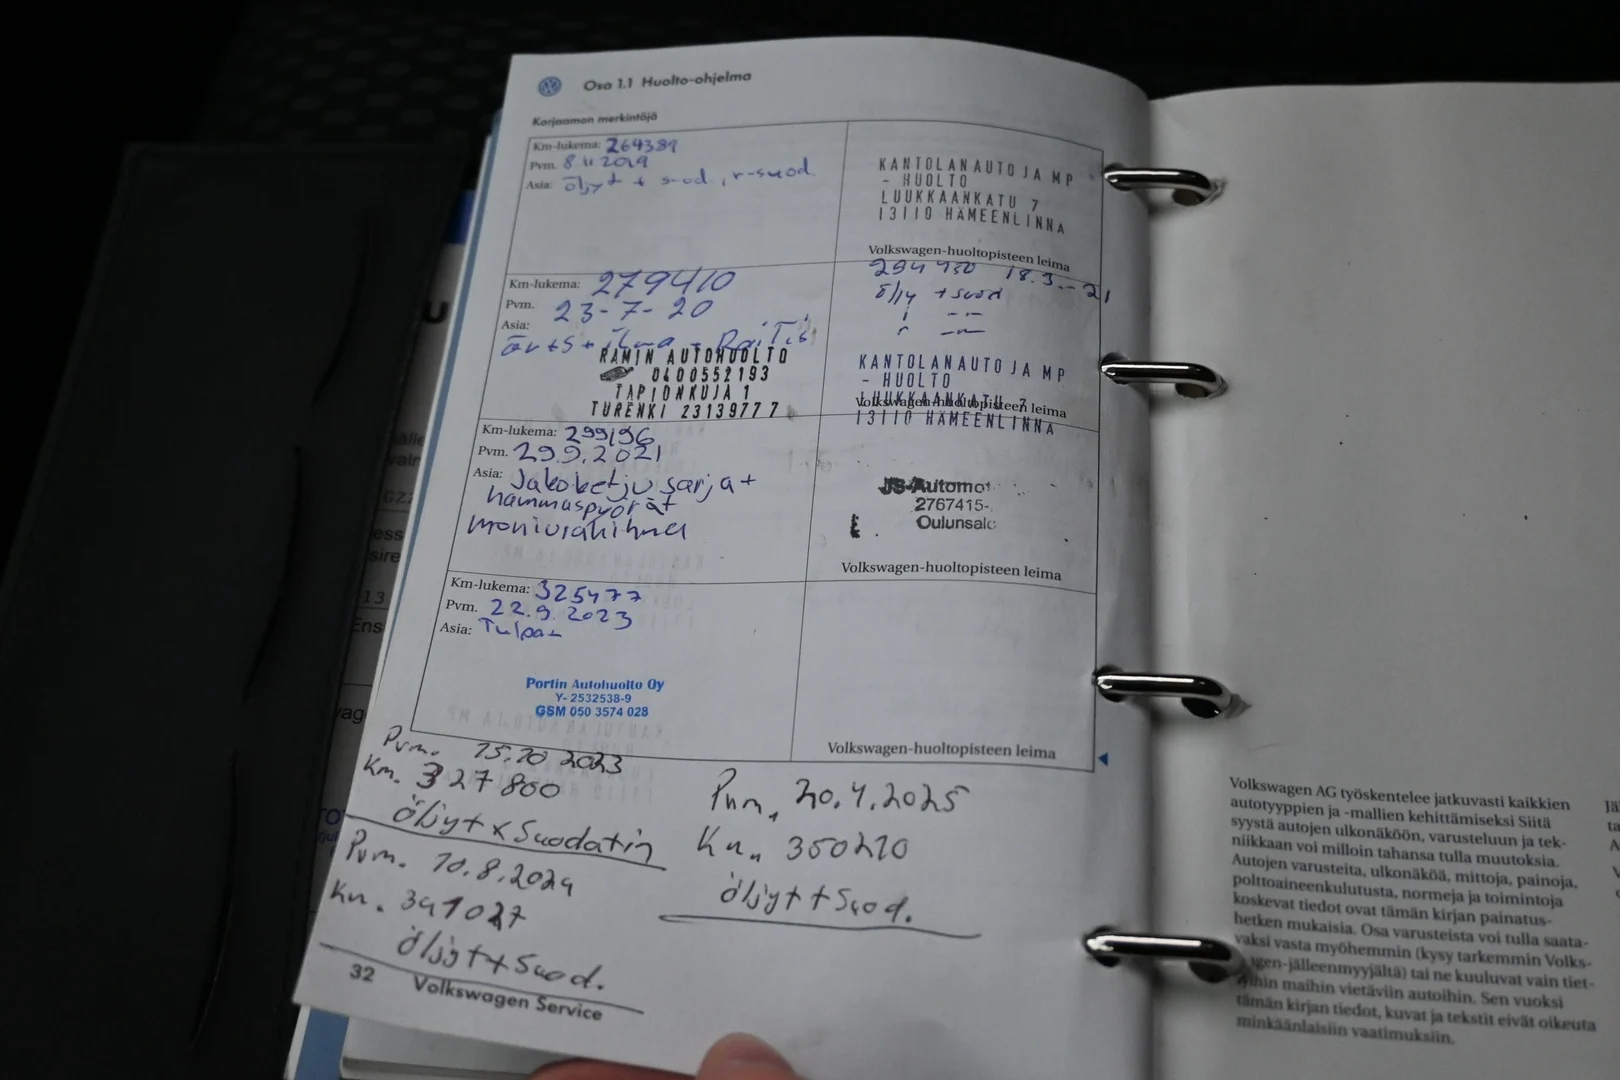 Osa 1.1 Huolto-ohjelma
Korjaamon merkintöjä
Km-lukema: 264389
Pvm. 8 11 2019
Asia: öljyt + suod., r-suod.
KANTOLAN AUTO JA MP
- HUOLTO
LUUKKAANKATU 7
13110 HÄMEENLINNA
Volkswagen-huoltopisteen leima
Km-lukema: 279410
Pvm. 23-7-20
Asia:
RAMIN AUTOHUOLTO
0400552193
TAPIONKUJA 1
TURENKI 23139777
294930 18.3.-21
öljy + suod
KANTOLAN AUTO JA MP
- HUOLTO
LUUKKAANKATU 7
Volkswagen-huoltopisteen leima
13110 HÄMEENLINNA
Km-lukema: 299196
Pvm. 29.9.2021
Asia: Jakoketju sarja +
hammaspyörät
moniurahihna
JS-Automo
2767415-
Oulunsalo
Volkswagen-huoltopisteen leima
Km-lukema: 325477
Pvm. 22.9.2023
Asia: Tulpat
Portin Autohuolto Oy
Y- 2532538-9
GSM 050 3574 028
Volkswagen-huoltopisteen leima
Pvm. 15.10 2023
Km. 327800
öljyt + Suodatin
Pvm. 10.8.2024
Km. 341027
öljyt + Suod.
Pvm. 20.4.2025
Km. 350210
öljyt + Suod.
32 Volkswagen Service
Volkswagen AG työskentelee jatkuvasti kaikkien
autotyyppien ja -mallien kehittämiseksi Siitä
syystä autojen ulkonäköön, varusteluun ja tek-
niikkaan voi milloin tahansa tulla muutoksia.
Autojen varusteita, ulkonäköä, mittoja, painoja,
polttoaineenkulutusta, normeja ja toimintoja
koskevat tiedot ovat tämän kirjan painatus-
hetken mukaisia. Osa varusteista voi tulla saata-
vaksi vasta myöhemmin (kysy tarkemmin Volks-
wagen-jälleenmyyjältä) tai ne kuuluvat vain tiet-
tyihin maihin vietäviin autoihin. Sen vuoksi
tämän kirjan tiedot, kuvat ja tekstit eivät oikeuta
minkäänlaisiin vaatimuksiin.